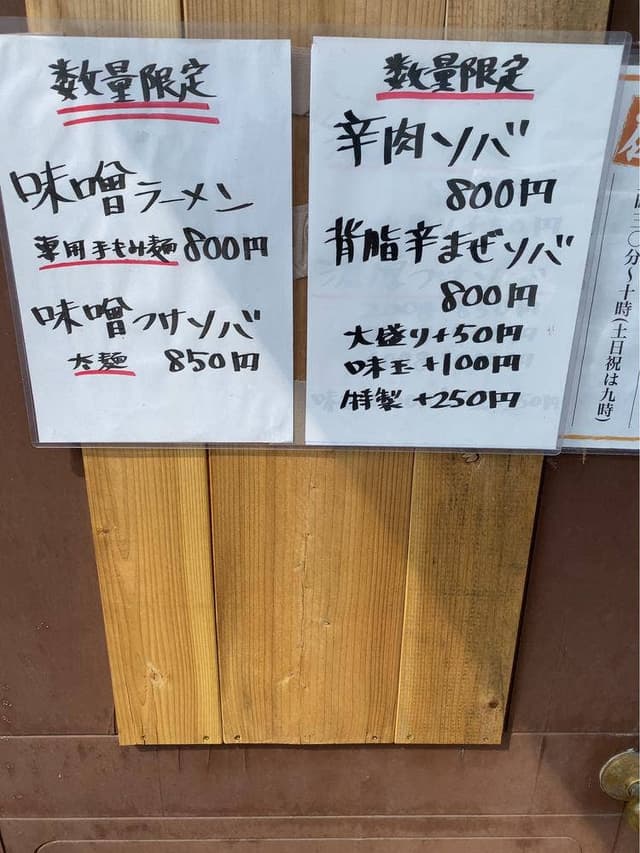 数量限定
味噌ラーメン
専用手もみ麺 800円
味噌つけソバ
太麺 850円
数量限定
辛肉ソバ
800円
背脂辛まぜソバ
800円
大盛り+50円
味玉+100円
特製 +250円
分〜十時(土日祝は九時)